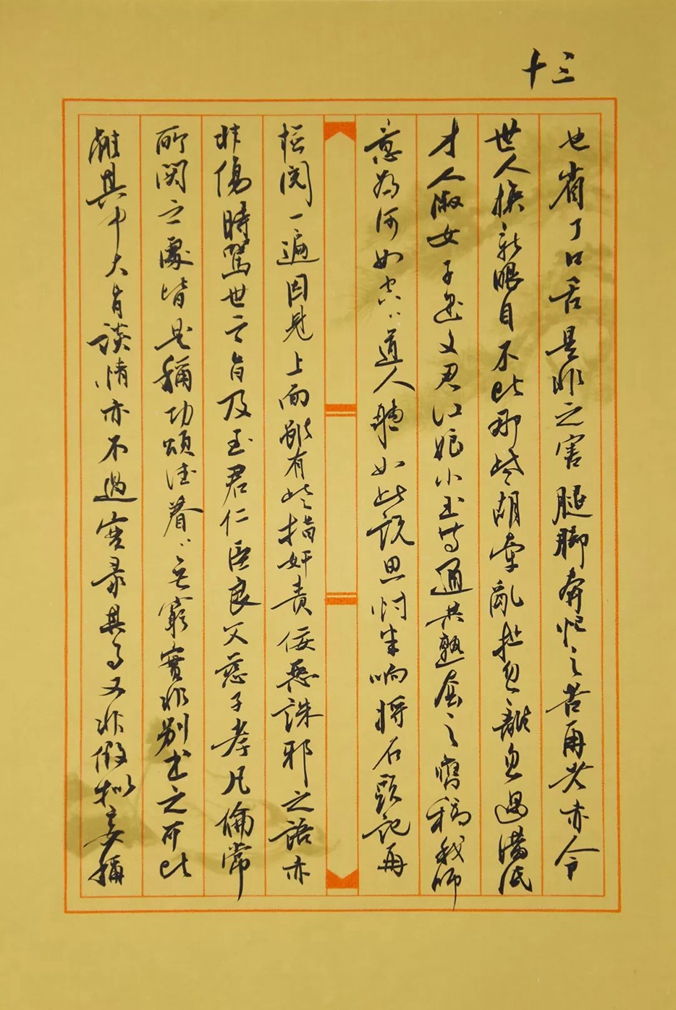 十三
也省了口舌是非之害腿脚奔忙之苦再者亦令
世人换新眼目不比那些胡牵乱扯忽离忽遇满纸
才人淑女子建文君红娘小玉等通共熟套之旧稿我师
意为何如空空道人听如此说思忖半晌将石头记再
检阅一遍因见上面虽有些指奸责佞恶诛邪之语亦
非伤时骂世之旨及至君仁臣良父慈子孝凡伦常
所关之处皆是称功颂德眷眷无穷实非别书之可比
虽其中大旨谈情亦不过实录其事又非假拟妄称